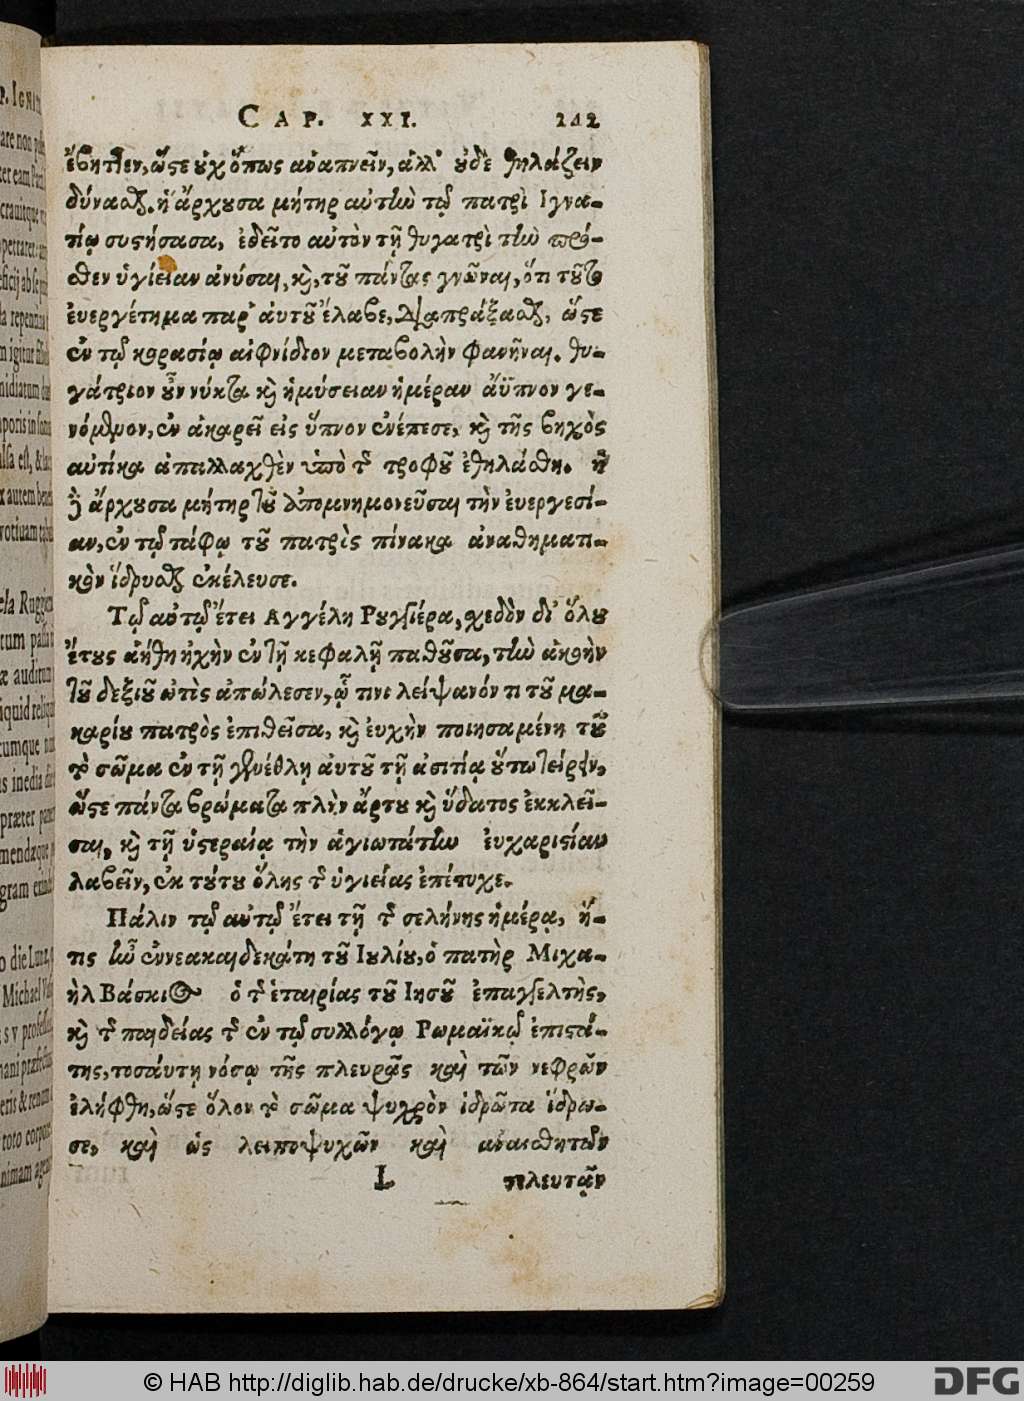 CAP. XXI. 242
ἔβηττεν, ὥστε οὐχ ὅπως ἀναπνεῖν, ἀλλ' οὐδὲ θηλάζειν
δύνασθαι. ἡ ἄρχουσα μήτηρ αὐτὴν τῷ πατρὶ Ιγνα-
τίῳ συστήσασα, ἐδεῖτο αὐτὸν τῇ θυγατρὶ τὴν πρό-
σθεν ὑγίειαν ἀνύσαι, καὶ, τοῦ πάντας γνῶναι, ὅτι τοῦτο
ἐυεργέτημα παρ' ἀυτοῦ ἔλαβε, διαπράξασθαι, ὥστε
ἐν τῷ κορασίῳ αἰφνίδιον μεταβολὴν φανῆναι. θυ-
γάτριον οὖν νύκτα καὶ ἡμύσειαν ἡμέραν ἄϋπνον γε-
νόμενον, ἐν ἀκαρεῖ εἰς ὕπνον ἐνέπεσε, καὶ τῆς βηχὸς
αὐτίκα ἀπαλλαχθὲν ὑπὸ τῆς τροφοῦ ἐθηλάσθη. ἡ
δὲ ἄρχουσα μήτηρ τοῦ ἀπομνημονεῦσαι τὴν ἐυεργεσί-
αν, ἐν τῷ τάφῳ τοῦ πατρὸς πίνακα ἀναθηματι-
κὸν ἱδρυσθαι ἐκέλευσε.
Τῷ αὐτῷ ἔτει Αγγέλη Ρουγγιέρα, σχεδὸν δι' ὅλου
ἔτους ἀήθη ἠχὴν ἐν τῇ κεφαλῇ παθοῦσα, τὴν ἀκοὴν
τοῦ δεξιοῦ ὠτὸς ἀπώλεσεν, ᾧ τινι λείψανόν τι τοῦ μα-
καρίου πατρὸς ἐπιθεῖσα, καὶ ἐυχὴν ποιησαμένη τοῦ
τὸ σῶμα ἐν τῇ γενέθλῃ ἀυτοῦ τῇ ἀσιτίᾳ οὕτω τείρειν,
ὥστε πάντα βρώματα πλὴν ἄρτου καὶ ὕδατος ἐκκλεῖ-
σαι, καὶ τῇ ὑστεραίᾳ τὴν ἁγιωτάτην ἐυχαριστίαν
λαβεῖν, ἐκ τούτου ὅλης τῆς ὑγιείας ἐπέτυχε.
Πάλιν τῷ αὐτῷ ἔτει τῇ τῆς σελήνης ἡμέρᾳ, ἥ-
τις ἦν ἐννεακαιδεκάτη τοῦ Ιουλίου, ὁ πατὴρ Μιχα-
ὴλ Βάσκιος ὁ τῆς ἑταιρίας τοῦ Ιησοῦ ἐπαγγελτὴς,
καὶ τῆς παιδείας τῆς ἐν τῷ συλλόγῳ Ρωμαϊκῷ ἐπιστά-
της, τοσάυτῃ νόσῳ τῆς πλευρᾶς καὶ τῶν νεφρῶν
ἐλήφθη, ὥστε ὅλον τὸ σῶμα ψυχρὸν ἱδρῶτα ἵδρω-
σε, καὶ ὡς λειποψυχῶν καὶ ἀναισθητῶν
L τελευτᾷν
© HAB http://diglib.hab.de/drucke/xb-864/start.htm?image=00259 DFG